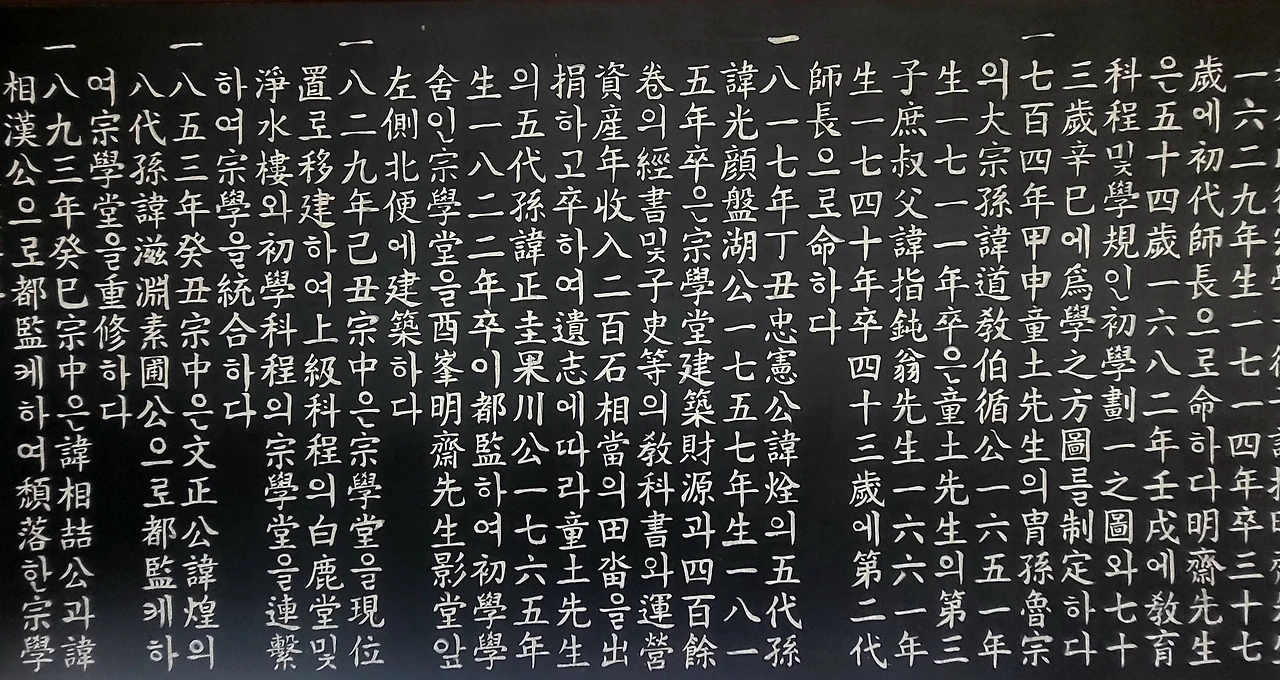 一六二九年生一七一四年卒三十七
歲에初代師長으로命하다明齋先生
은五十四歲一六八二年壬戌에敎育
科程및學規인初學劃一之圖와七十
三歲辛巳에爲學之方圖를制定하다
一七百四年甲申童土先生의冑孫魯宗
의大宗孫諱道敎伯循公一六五一年
生一七一一年卒은童土先生의第三
子庶叔父諱指鈍翁先生一六六一年
生一七四十年卒四十三歲에第二代
師長으로命하다
一八一七年丁丑忠憲公諱烇의五代孫
諱光顔盤湖公一七五七年生一八一
五年卒은宗學堂建築財源과四百餘
卷의經書및子史等의敎科書와運營
資産年收入二百石相當의田畓을出
捐하고卒하여遺志에따라童土先生
의五代孫諱正圭果川公一七六五年
生一八二二年卒이都監하여初學學
舍인宗學堂을酉峯明齋先生影堂앞
左側北便에建築하다
一八二九年己丑宗中은宗學堂을現位
置로移建하여上級科程의白鹿堂및
淨水樓와初學科程의宗學堂을連繫
하여宗學을統合하다
一八五三年癸丑宗中은文正公諱煌의
八代孫諱滋淵素圃公으로都監케하
여宗學堂을重修하다
一八九三年癸巳宗中은諱相喆公과諱
相漢公으로都監케하여頹落한宗學